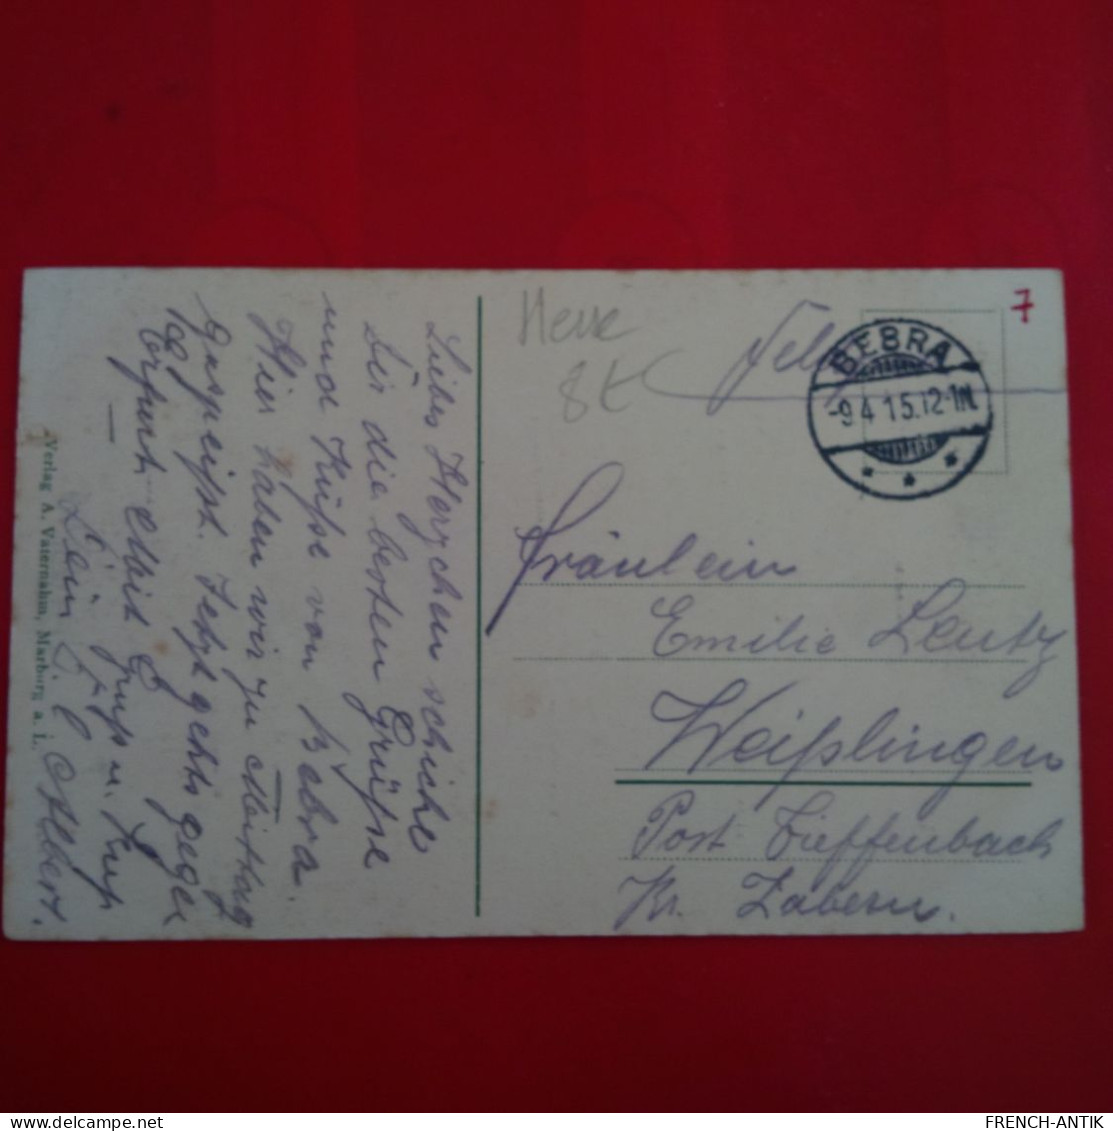 Liebes Herzchen schicke
Dir die besten Grüße
und Küße von Bebra.
Hier haben wir zu Mittag
gespeißt. Jetzt gehts gegen
Erfurt. Mit Gruß u. Kuß
Dein Albert.
Verlag A. Vaternahm, Marburg a. L.
8 €
7
BEBRA
-9.4.15.12-1N.
Fräulein
Emilie Leutz
Weißlingen
Post Tieffenbach
Kr. Zabern.
FRENCH-ANTIK